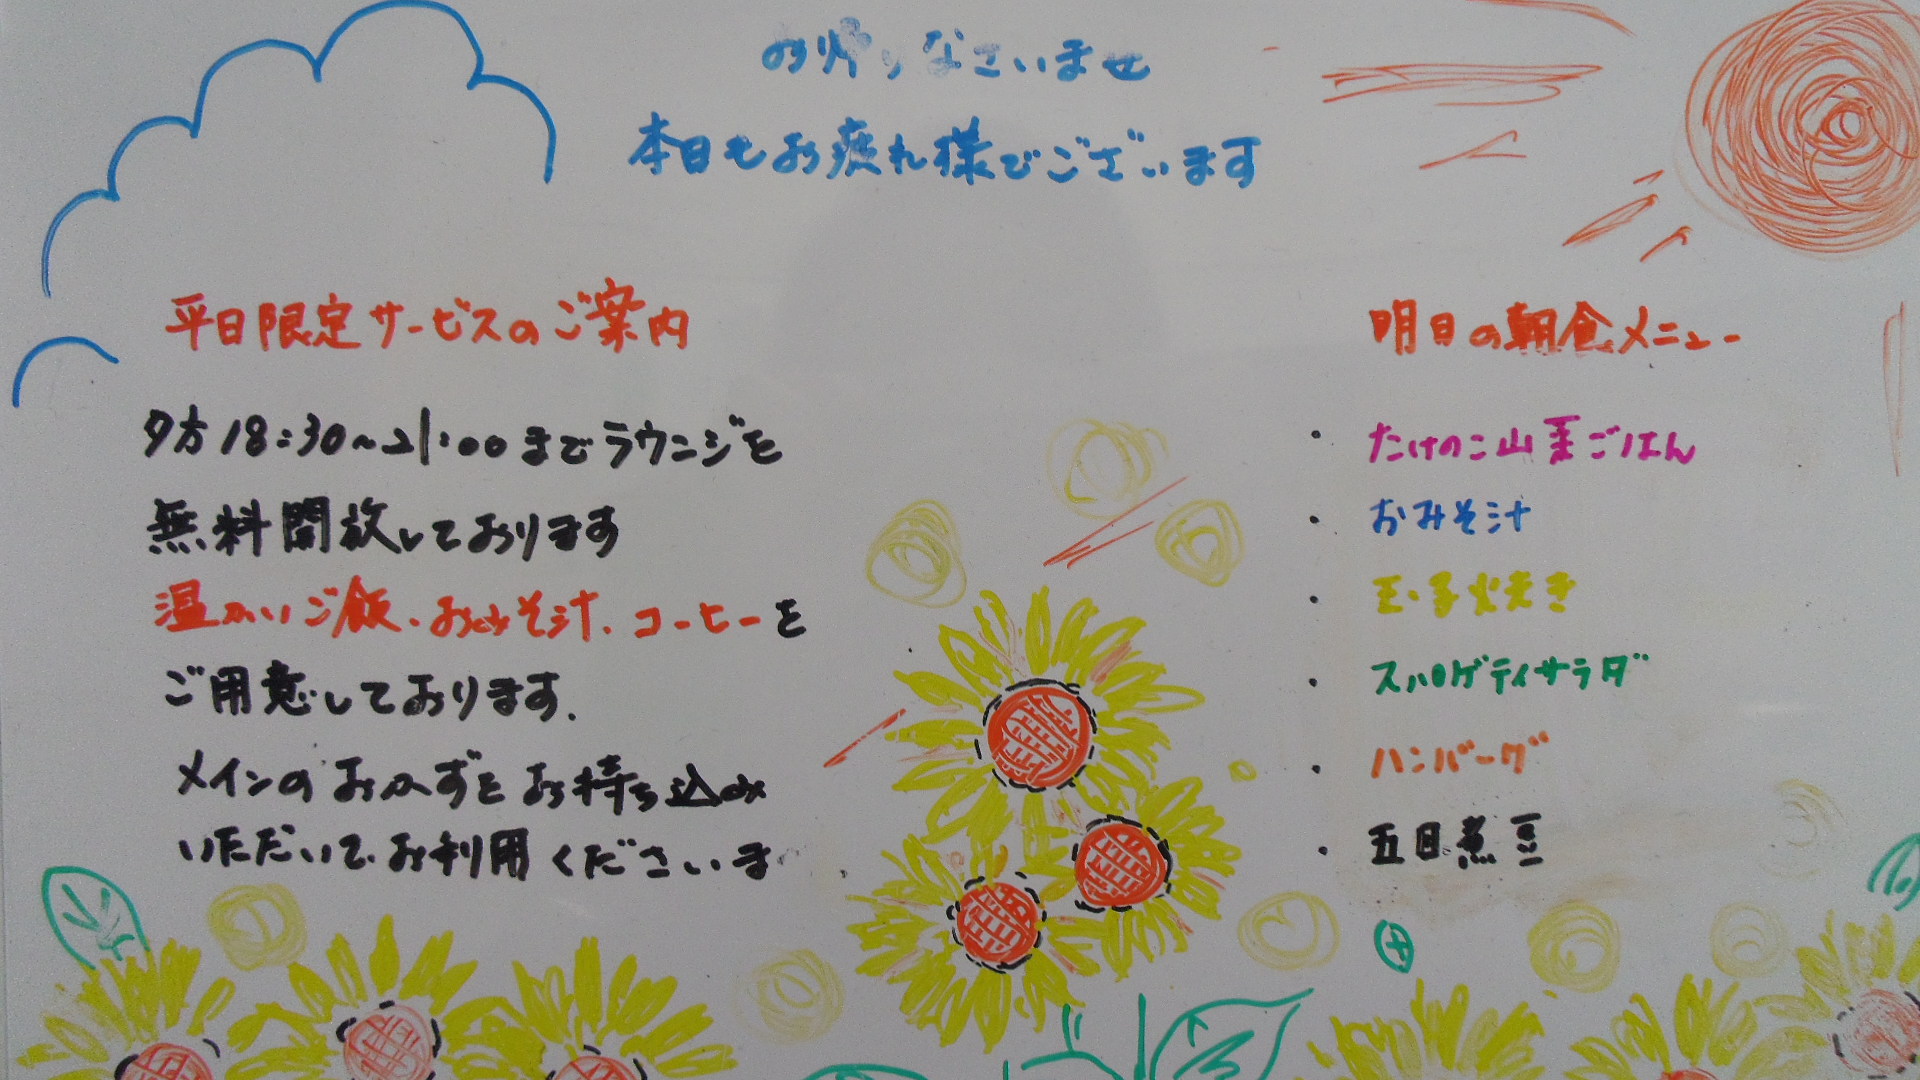 お帰りなさいませ
本日もお疲れ様でございます
平日限定サービスのご案内
夕方18:30~21:00までラウンジを
無料開放しております
温かいご飯、おみそ汁、コーヒーを
ご用意しております.
メインのおかずをお持ち込み
いただいて、お利用くださいま
明日の朝食メニュー
・たけのこ山菜ごはん
・おみそ汁
・玉子焼き
・スパゲティサラダ
・ハンバーグ
・五目煮豆